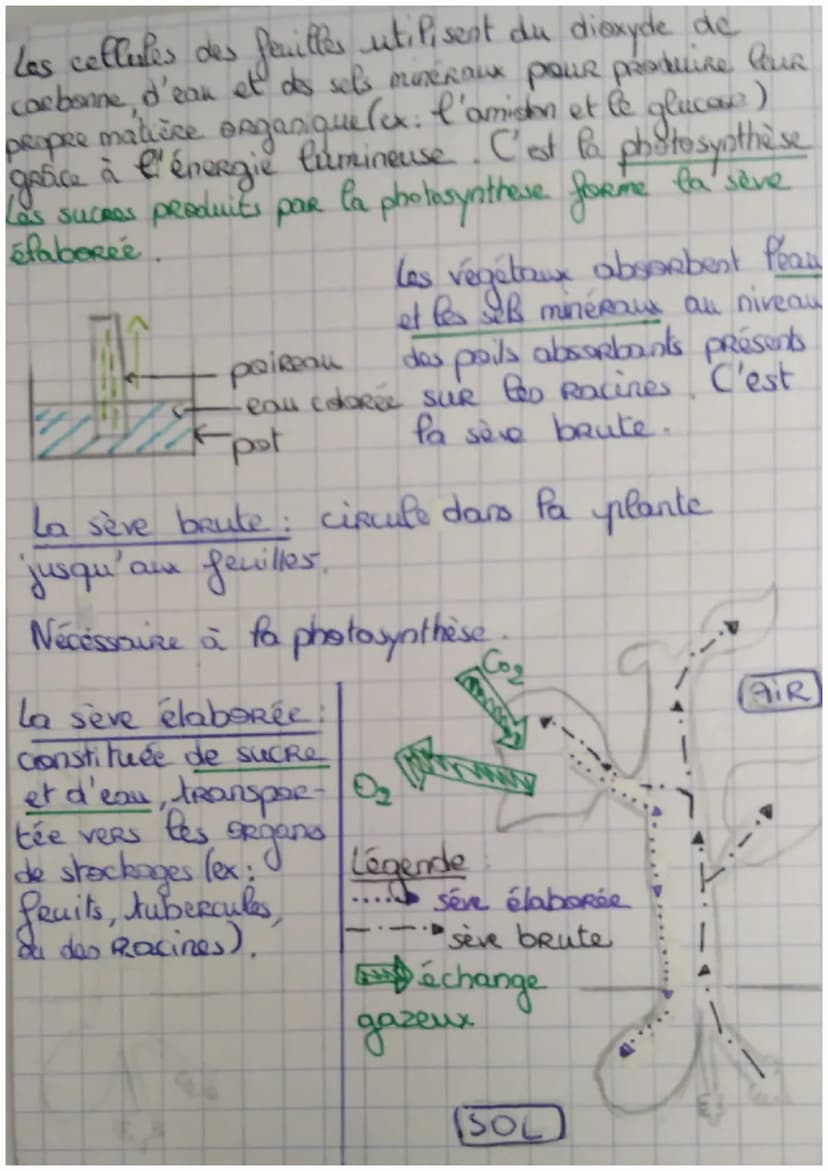 Les cellules des feuilles utilisent du dioxyde de
carbonne, d'eau et des sels minéraux pour produire leur
propre matière organique (ex: l'amidon et le glucose)
grâce à l'énergie lumineuse. C'est la photosynthèse
Les sucres produits par la photosynthese forme la sève
élaborée.
Les végétaux absorbent l'eau
et les sels minéraux au niveau
des poils absorbants présents
sur les racines. C'est
la sève brute.
poireau
eau colorée
pot
La sève brute: circule dans la plante
jusqu'aux feuilles.
Nécéssaire à la photosynthèse.
La sève élaborée:
constituée de sucre
et d'eau, transpor-
tée vers les organs
de stockages (ex:
fruits, tubercules,
ou des racines).
Co2
O2
AiR
Légende
séve élaborée
sève brute
échange
gazeux
SOL